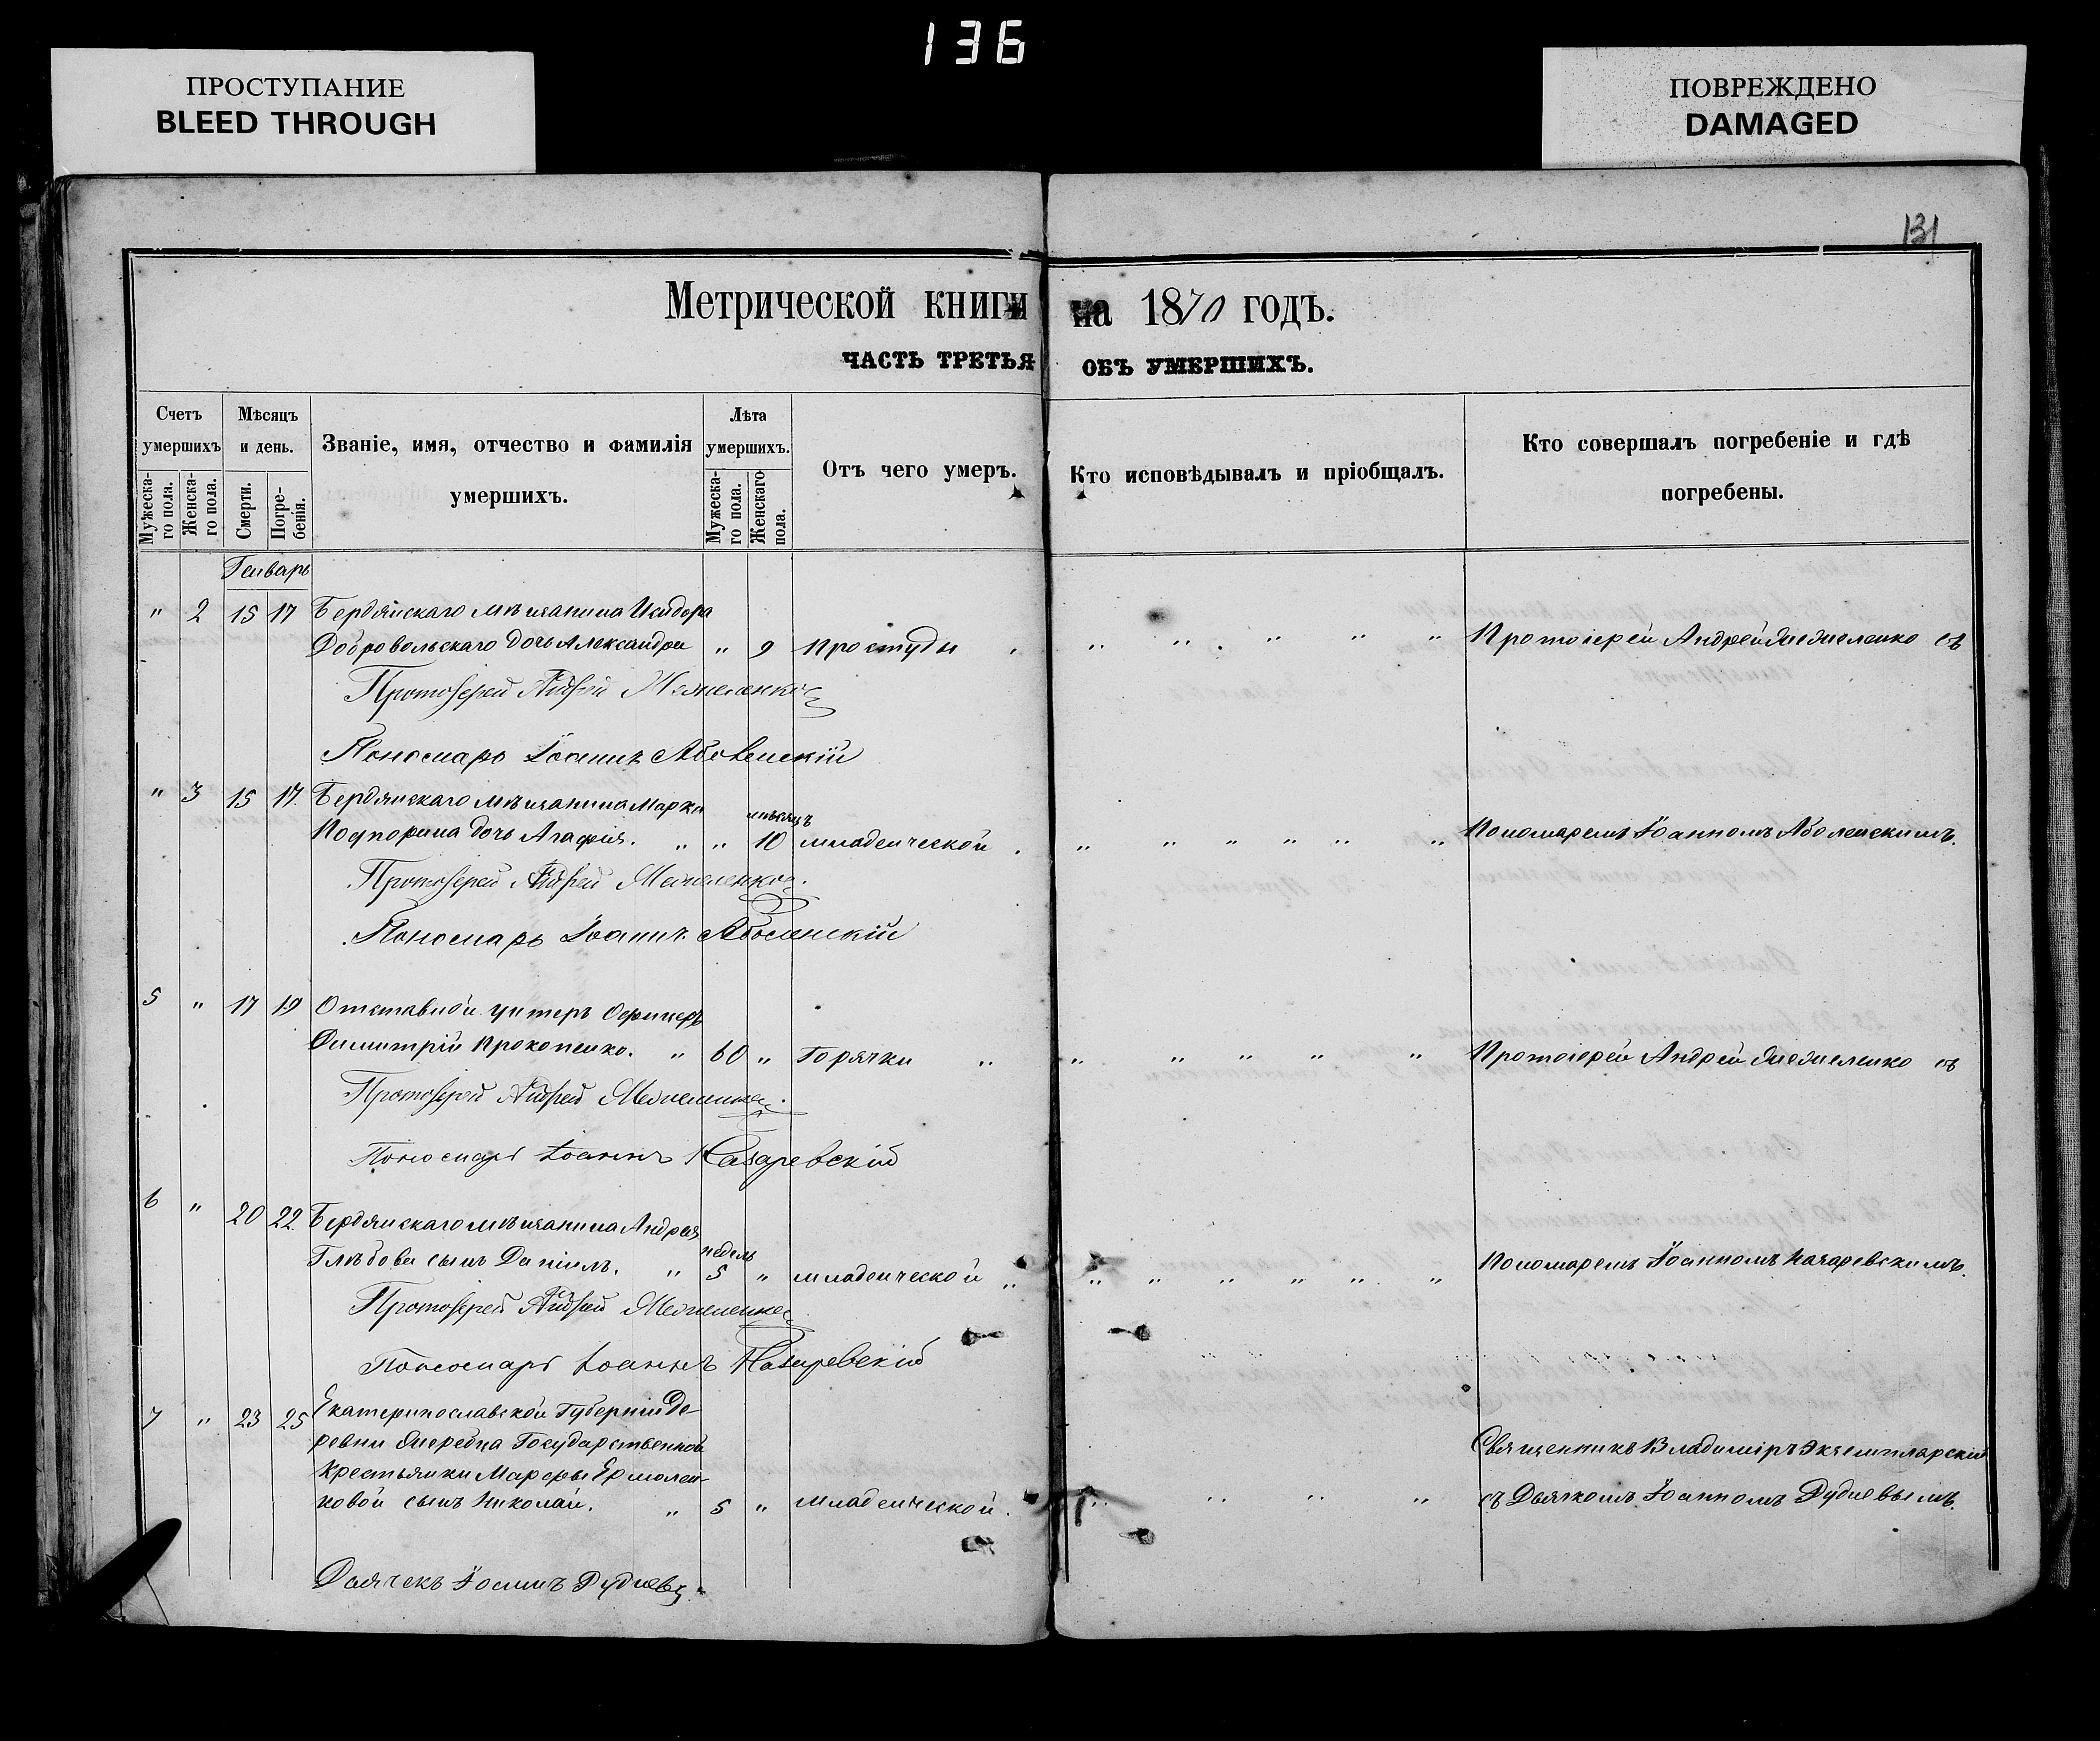 136
ПРОСТУПАНИЕ
BLEED THROUGH
ПОВРЕЖДЕНО
DAMAGED
131
Метрической книги на 1870 годъ.
ЧАСТЬ ТРЕТЬЯ ОБЪ УМЕРШИХЪ.
Счетъ умершихъ
Мужеска-го пола.
Женска-го пола.
Мѣсяцъ и день.
Смерти.
Погре-бенія.
Званіе, имя, отчество и фамилія умершихъ.
Лѣта умершихъ.
Мужеска-го пола.
Женскаго пола.
Отъ чего умеръ.
Кто исповѣдывалъ и пріобщалъ.
Кто совершалъ погребеніе и гдѣ погребены.
Генварь
" 2 15 17 Бердянскаго мѣщанина Исидора
Добровольскаго дочь Александра " 9 Простуды " " " " " Протоіерей Андрей съ
Протоіерей Андрей
Пономарь Іоаннъ Аболенскій
" 3 15 17. Бердянскаго мѣщанина Марка
мѣсяцъ
дочь Агафія. " " 10 младенческой. " " " " " " Пономаремъ Іоанномъ Аболенскимъ.
Протоіерей Андрей
Пономарь Іоаннъ Аболенскій
5 " 17 19 Отставной унтеръ Офицеръ
Димитрій Прокопенко. " 60 " Горячки " " " " " " Протоіерей Андрей съ
Протоіерей Андрей
Пономарь Іоаннъ Назаревскій
6 " 20 22 Бердянскаго мѣщанина Андрея
недель
Глѣбова сынъ Даніилъ. " 5 " младенческой " " " " " " " Пономаремъ Іоанномъ Назаревскимъ.
Протоіерей Андрей
Пономарь Іоаннъ Назаревскій
7 " 23 25 Екатеринославской Губерніи Де-
ревни Государственной
крестьянки Марфы Ермолен-
ковой сынъ Николай. " 5 " Младенческой. " " " "
Священникъ Владиміръ Экземплярскій
съ Дьячкомъ Іоанномъ Рудневымъ.
Дьячекъ Іоаннъ Рудневъ.